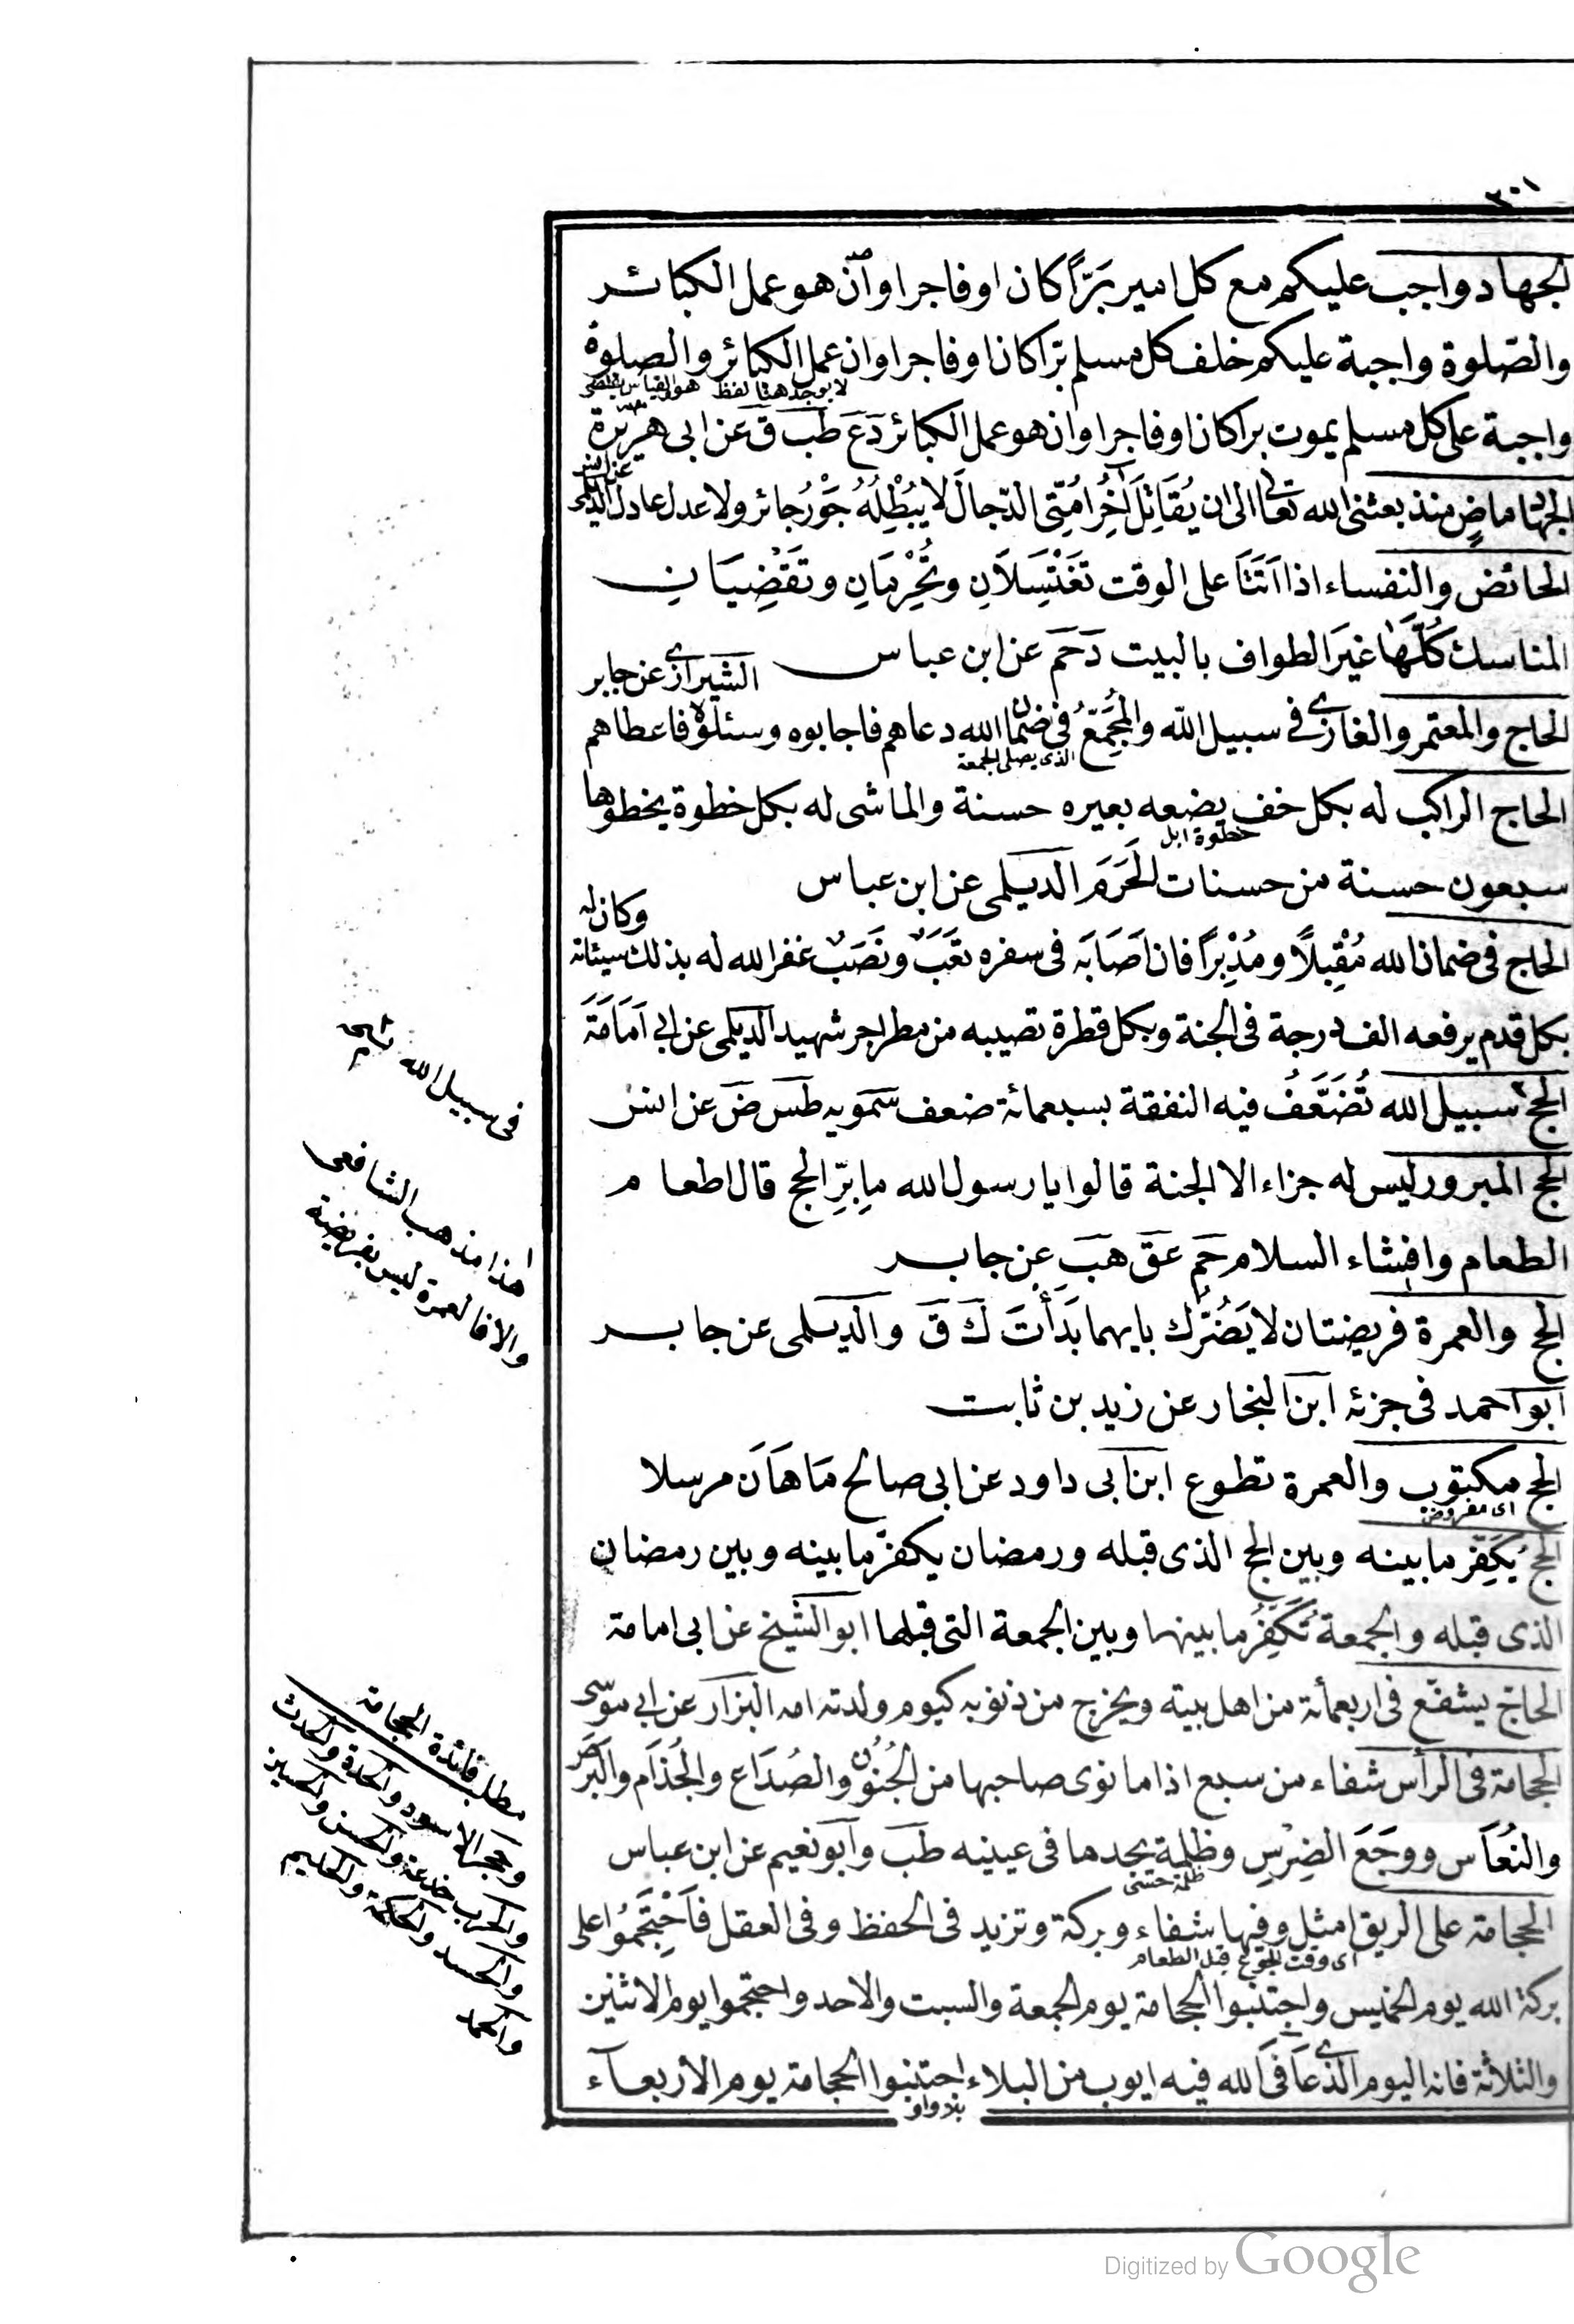 ٣٠١
الجهاد واجب عليكم مع كل امير بَرًّا كان او فاجرا وان هو عمل الكبائر
والصّلوة واجبة عليكم خلف كل مسلم برّا كان او فاجرا وان عمل الكبائر والصلوة
لا يوجد هنا لفظ هو والقياس يقتضى
واجبة على كل مسلم يموت برا كان او فاجرا وان هو عمل الكبائر دَعَ طَب قَ عن ابى هريرة
عن انس
الجهاد ماضٍ منذ بعثنى الله تعالى الى ان يُقَاتِلَ آخِرُ امَّتِى الدّجالَ لا يُبْطِلُهُ جَوْرُ جائر ولا عدل عادل الديلمى
الحائض والنفساء اذا اَتَتَا على الوقت تَغْتَسِلَانِ وتُحْرِمَانِ وتَقْضِيَانِ
المناسك كُلَّهَا غيرَ الطواف بالبيت دَحَم عن ابن عباس
الشيرازى عن جابر
الحاج والمعتمر والغازى فى سبيل الله والمُجَمِّعُ فى ضمان الله دعاهم فاجابوه وسئلوه فاعطاهم
الذى يصلى الجمعة
الحاج الراكب له بكل خف يضعه بعيره حسنة والماشى له بكل خطوة يخطوها
خطوة ابل
سبعون حسنة من حسنات الحَرَم الديلمى عن ابن عباس
وكان له
الحاج فى ضمان الله مُقْبِلًا ومُدْبِرًا فان اَصَابَه فى سفره تَعَبٌ ونَصَبٌ غفر الله له بذلك سيئاته
بكل قدم يرفعه الف درجة فى الجنة وبكل قطرة تصيبه من مطر اجر شهيد الديلمى عن ابى اَمَامَة
الحج سبيل الله تُضَعَّفُ فيه النفقة بسبعمائة ضعف سَمّويه طَس ضَ عن انس
الحج المبرور ليس له جزاء الا الجنة قالوا يا رسول الله ما بِرّ الحج قال اطعام
الطعام وافشاء السلام حَم عَق هَب عن جابر
الحج والعمرة فريضتان لا يَضُرُّك بايهما بَدَأْتَ كَ قَ والديلمى عن جابر
ابو احمد فى جزئه ابن النجار عن زيد بن ثابت
الحج مكتوب والعمرة تطوع ابن ابى داود عن ابى صالح مَاهَان مرسلا
اى مفروض
الحج يُكَفِّر ما بينه وبين الحج الذى قبله ورمضان يكفّر ما بينه وبين رمضان
الذى قبله والجمعة تُكَفِّرُ ما بينها وبين الجمعة التى قبلها ابو الشيخ عن ابى امامة
الحاجّ يشفّع فى اربعمأئة من اهل بيته ويخرج من ذنوبه كيوم ولدته امه البزار عن ابى موسى
الحجامة فى الرأس شفاء من سبع اذا ما نوى صاحبها من الجُنُون والصُدَاع والجُذَام والبَرَص
والنُعَاس ووَجَعَ الضِرْسِ وظلمة يجدها فى عينيه طَب وابو نعيم عن ابن عباس
ظلمة حسى
الحجامة على الريق امثل وفيها شفاء وبركة وتزيد فى الحفظ وفى العقل فَاحْتَجِمُوا على
اى وقت الجوع قبل الطعام
بركة الله يوم الخميس واجتنبوا الحجامة يوم الجمعة والسبت والاحد واحتجموا يوم الاثنين
والثلاثة فانه اليوم الذى عَافَى الله فيه ايوب من البلاء اجتنبوا الحجامة يوم الأربعاء
بلا واو
فى سبيل الله
هذا مذهب الشافعى
والا فالعمرة ليس بفريضة
مطلب فائدة الحجامة
وحجر الاسود والحدة والحدث
والحرب خدعة والحسن والحسين
والحسد والحكمة والحليم
والحمد
Digitized by Google